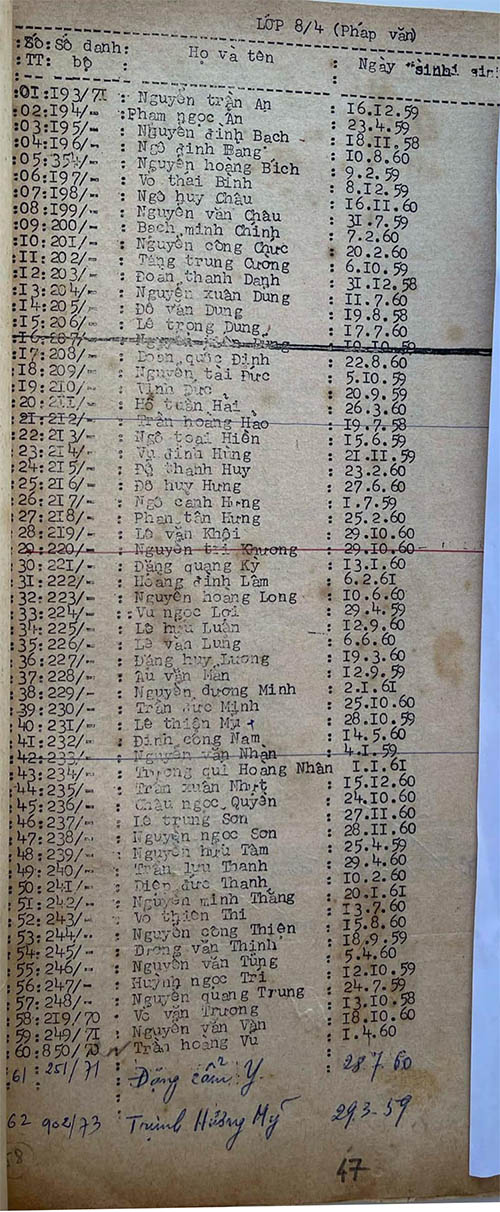 LỚP 8/4 (Pháp văn)
Số: Số danh: Họ và tên : Ngày sinh
TT: bộ
:01:193/71 : Nguyễn trần An : 16.12.59
:02:194/- :Phạm ngọc Ân : 23.4.59
:03:195/- : Nguyễn đình Bạch : 18.11.58
:04:196/- : Ngô đình Bang : 10.8.60
:05:354/- : Nguyễn hoàng Bích : 9.2.59
:06:197/- : Võ thái Bình : 8.12.59
:07:198/- : Ngô huy Châu : 16.11.60
:08:199/- : Nguyễn văn Châu : 31.7.59
:09:200/- : Bạch minh Chính : 7.2.60
:10:201/- : Nguyễn công Chức : 20.2.60
:11:202/- : Tăng trung Cương : 6.10.59
:12:203/- : Đoàn thanh Danh : 31.12.58
:13:204/- : Nguyễn xuân Dung : 11.7.60
:14:205/- : Đỗ văn Dung : 19.8.58
:15:206/- : Lê trọng Dung : 17.7.60
:16:207/- : Nguyễn Dung : 19.10.59
:17:208/- : Đoàn quốc Định : 22.8.60
:18:209/- : Nguyễn tài Đức : 5.10.59
:19:210/- : Vĩnh Đức : 20.9.59
:20:211/- : Hồ tuấn Hải : 26.3.60
:21:212/- : Trần hoàng Hào : 19.7.58
:22:213/- : Ngô toại Hiền : 15.6.59
:23:214/- : Vũ đình Hùng : 21.11.59
:24:215/- : Đỗ thanh Huy : 23.2.60
:25:216/- : Đỗ huy Hưng : 27.6.60
:26:217/- : Ngô cảnh Hưng : 1.7.59
:27:218/- : Phan tấn Hưng : 25.2.60
:28:219/- : Lê văn Khôi : 29.10.60
:29:220/- : Nguyễn tri Khương : 29.10.60
:30:221/- : Đặng quang Kỳ : 13.1.60
:31:222/- : Hoàng đình Lâm : 6.2.61
:32:223/- : Nguyễn hoàng Long : 10.6.60
:33:224/- :: Vũ ngọc Lợi : 29.4.59
:34:225/- : Lê hữu Luân : 12.9.60
:35:226/- : Lê văn Lung : 6.6.60
:36:227/- : Đặng huy Lương : 19.3.60
:37:228/- : Âu văn Mẫn : 12.9.59
:38:229/- : Nguyễn dương Minh : 2.1.61
:39:230/- : Trần đức Minh : 25.10.60
:40:231/- : Lê thiện Mỹ : 28.10.59
:41:232/- : Đinh công Nam : 14.5.60
:42:233/- : Nguyễn văn Nhàn : 4.1.59
:43:234/- : Trương qui Hoàng Nhân 1.1.61
:44:235/- : Trần xuân Nhựt : 15.12.60
:45:236/- : Châu ngọc Quyên : 24.10.60
:46:237/- : Lê trung Sơn : 27.11.60
:47:238/- : Nguyễn ngọc Sơn : 28.11.60
:48:239/- : Nguyễn hữu Tâm : 25.4.59
:49:240/- : Trần lưu Thanh : 29.4.60
:50:241/- : Diệp đức Thanh : 10.2.60
:51:242/- : Nguyễn minh Thắng : 20.1.61
:52:243/- : Võ thiên Thi : 13.7.60
:53:244/- : Nguyễn công Thiện : 15.8.60
:54:245/- : Dương văn Thịnh : 18.9.59
:55:246/- : Nguyễn văn Tùng : 5.4.60
:56:247/- : Huỳnh ngọc Trí : 12.10.59
:57:248/- : Nguyễn quang Trung : 24.7.59
:58:219/70 : Võ văn Trương : 13.10.58
:59:249/71 : Nguyễn văn Vân : 18.10.60
:60:850/70 : Trần hoàng Vũ : 1.4.60
61 251/71 Đặng cẩm Y. 28.7.60
62 902/73 Trịnh Hướng Mỹ 29.3-59
58
47